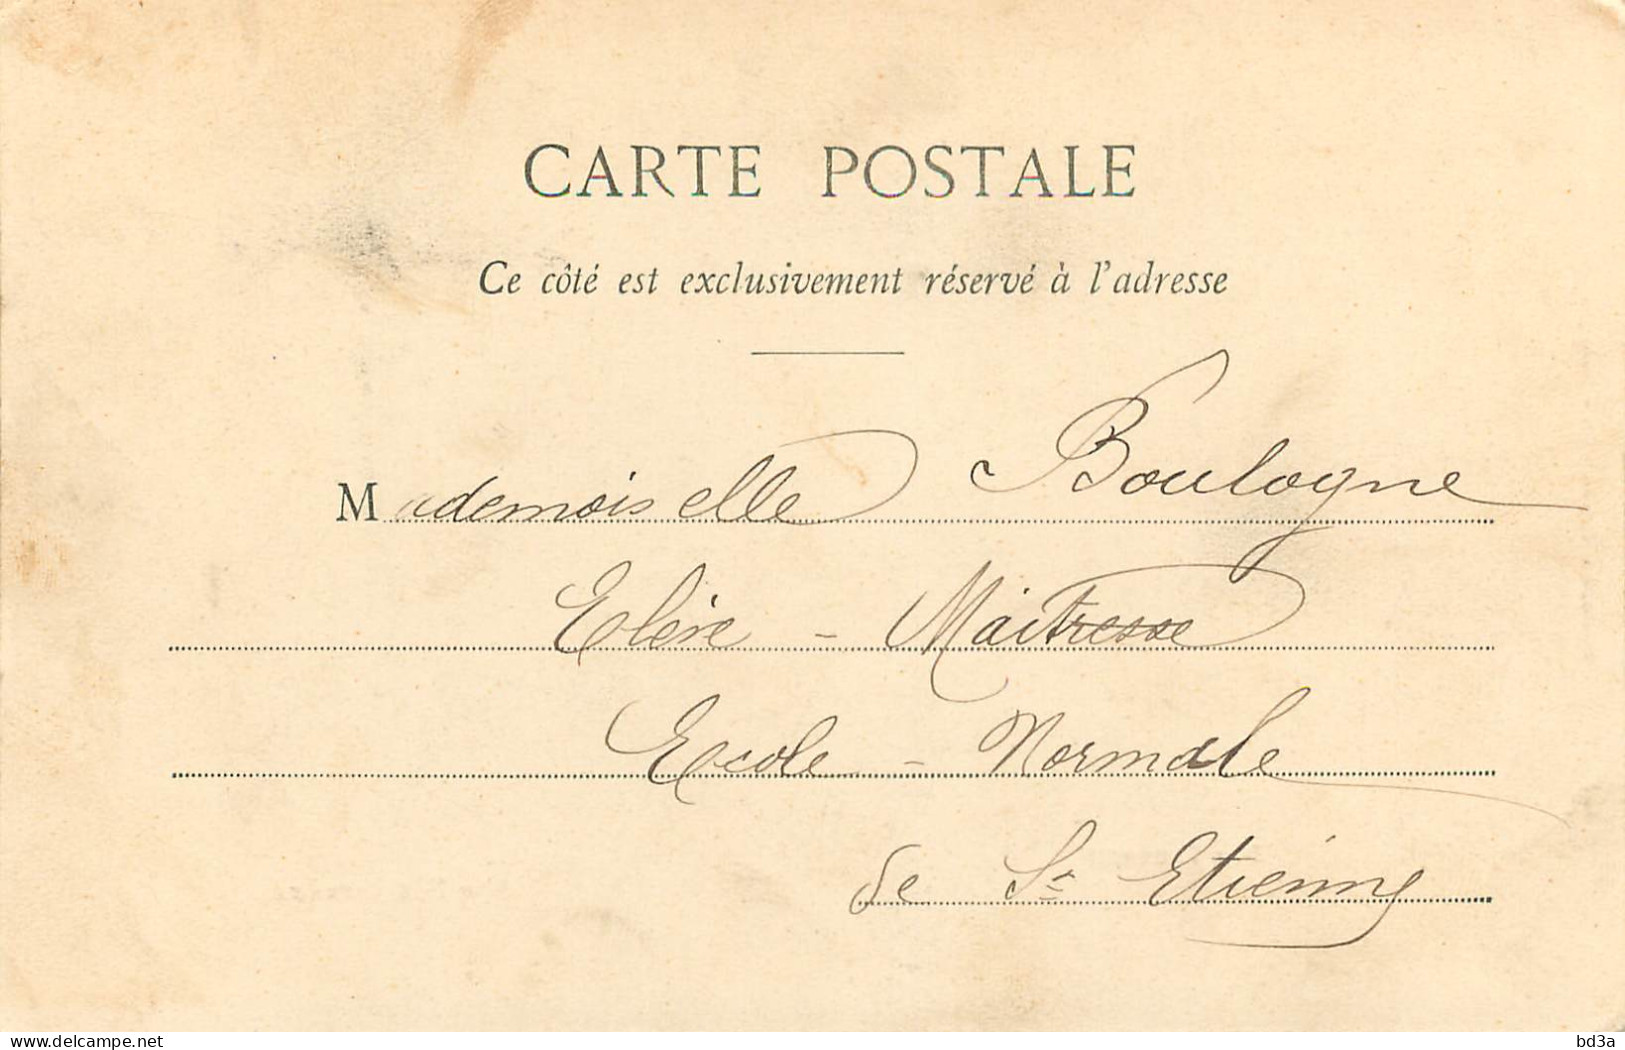 CARTE POSTALE
Ce côté est exclusivement réservé à l'adresse
Mademoiselle Boulogne
Elève - Maitresse
Ecole - Normale
de St Etienne
delcampe.net
bd3a